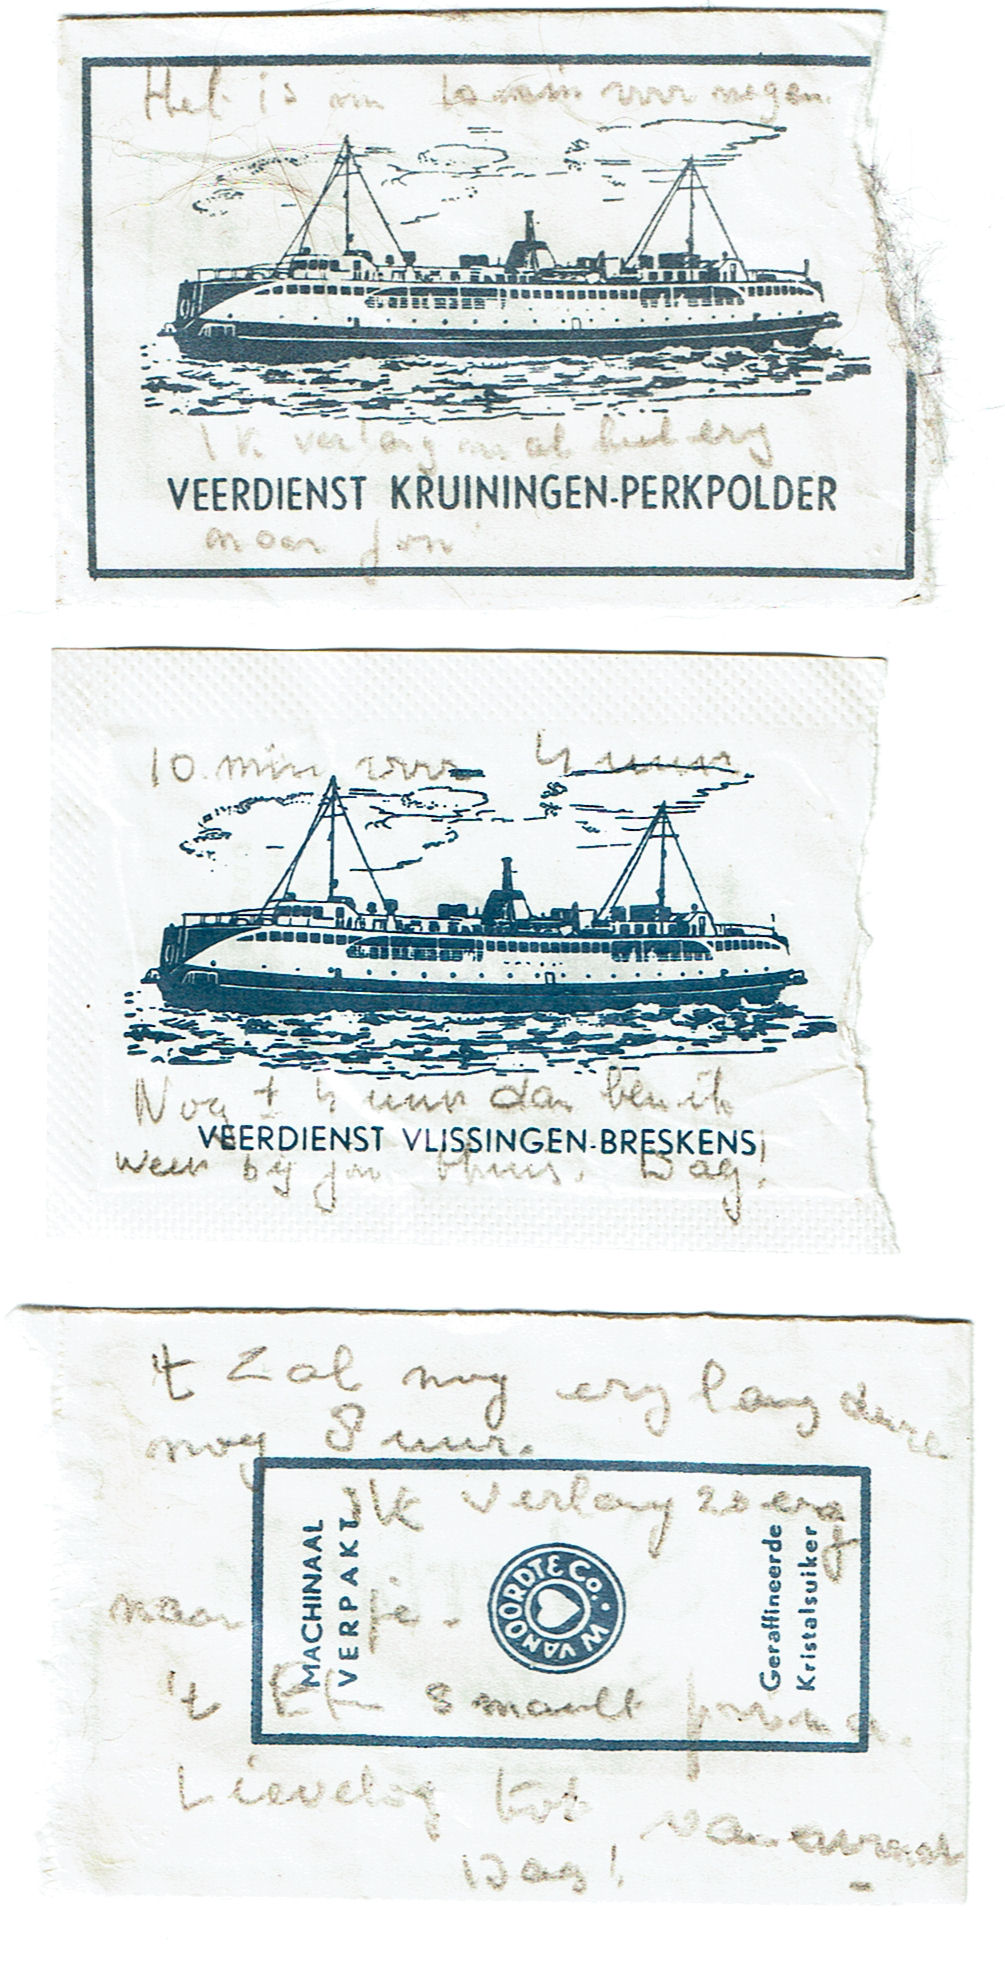 Het is nu 10 min voor negen.
Ik verlang nu al heel erg
VEERDIENST KRUININGEN-PERKPOLDER
naar jou
10 min voor 4 uur
Nog ± 4 uur dan ben ik
VEERDIENST VLISSINGEN-BRESKENS
weer bij jou thuis. Dag!
't Zal nog erg lang dure
nog 8 uur.
Ik verlang zo erg
MACHINAAL
VERPAKT
W VAN OORDT & Co.
Geraffineerde
Kristalsuiker
naar je.
't Eten smaakt prima.
Lieveling tot vanavond
Dag!